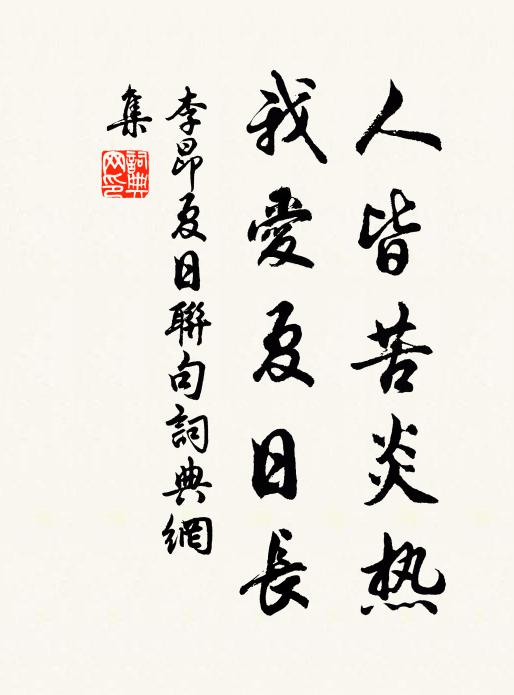 人皆苦炎热
我愛夏日長
李昂夏日聯句詞典網
集
詞典网印